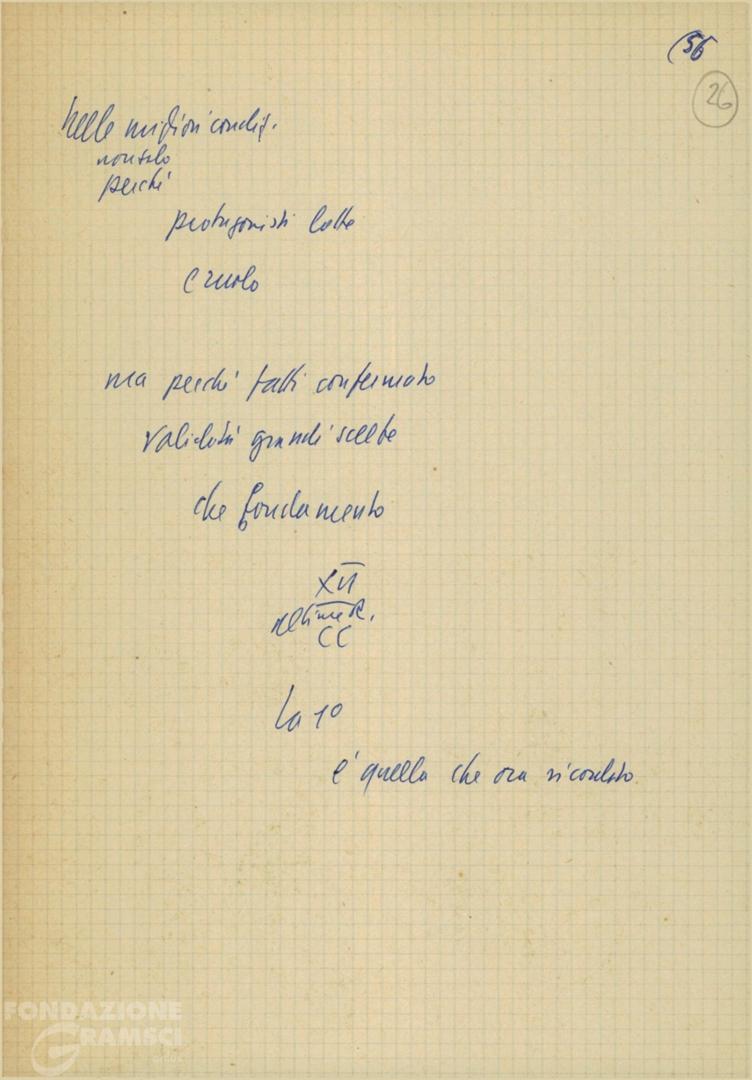 56
26
nelle migliori condiz.
non solo
perché
protagonisti lotte
e ruolo
ma perché fatti confermato
validità grandi scelte
che fondamento
XII
ultime R.
CC
La 1º
è quella che ora ricordato
FONDAZIONE
GRAMSCI